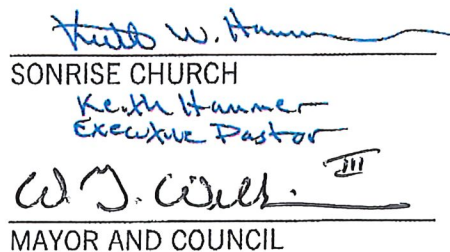 Keith W. Hammer
SONRISE CHURCH
Keith Hammer
Executive Pastor
W. J. III
MAYOR AND COUNCIL